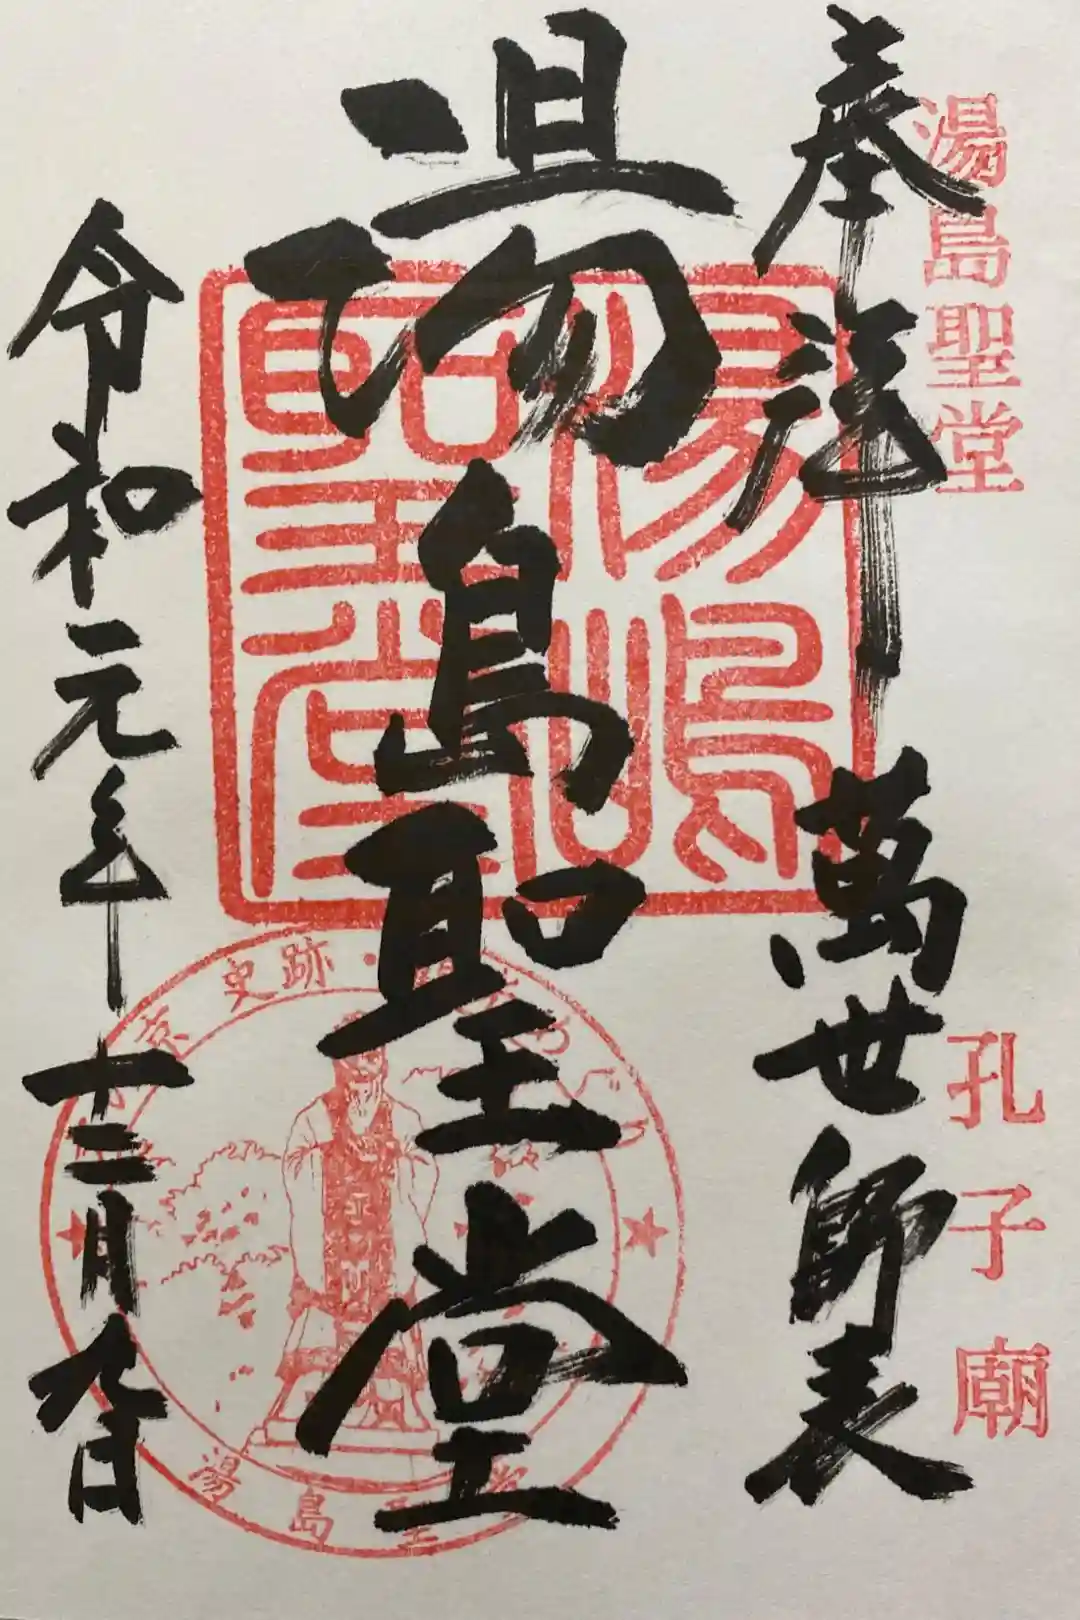 湯島聖堂
孔子廟
奉拝 萬世師表
湯島聖堂
令和元年十二月九日
湯島聖堂
史跡・
湯島聖堂